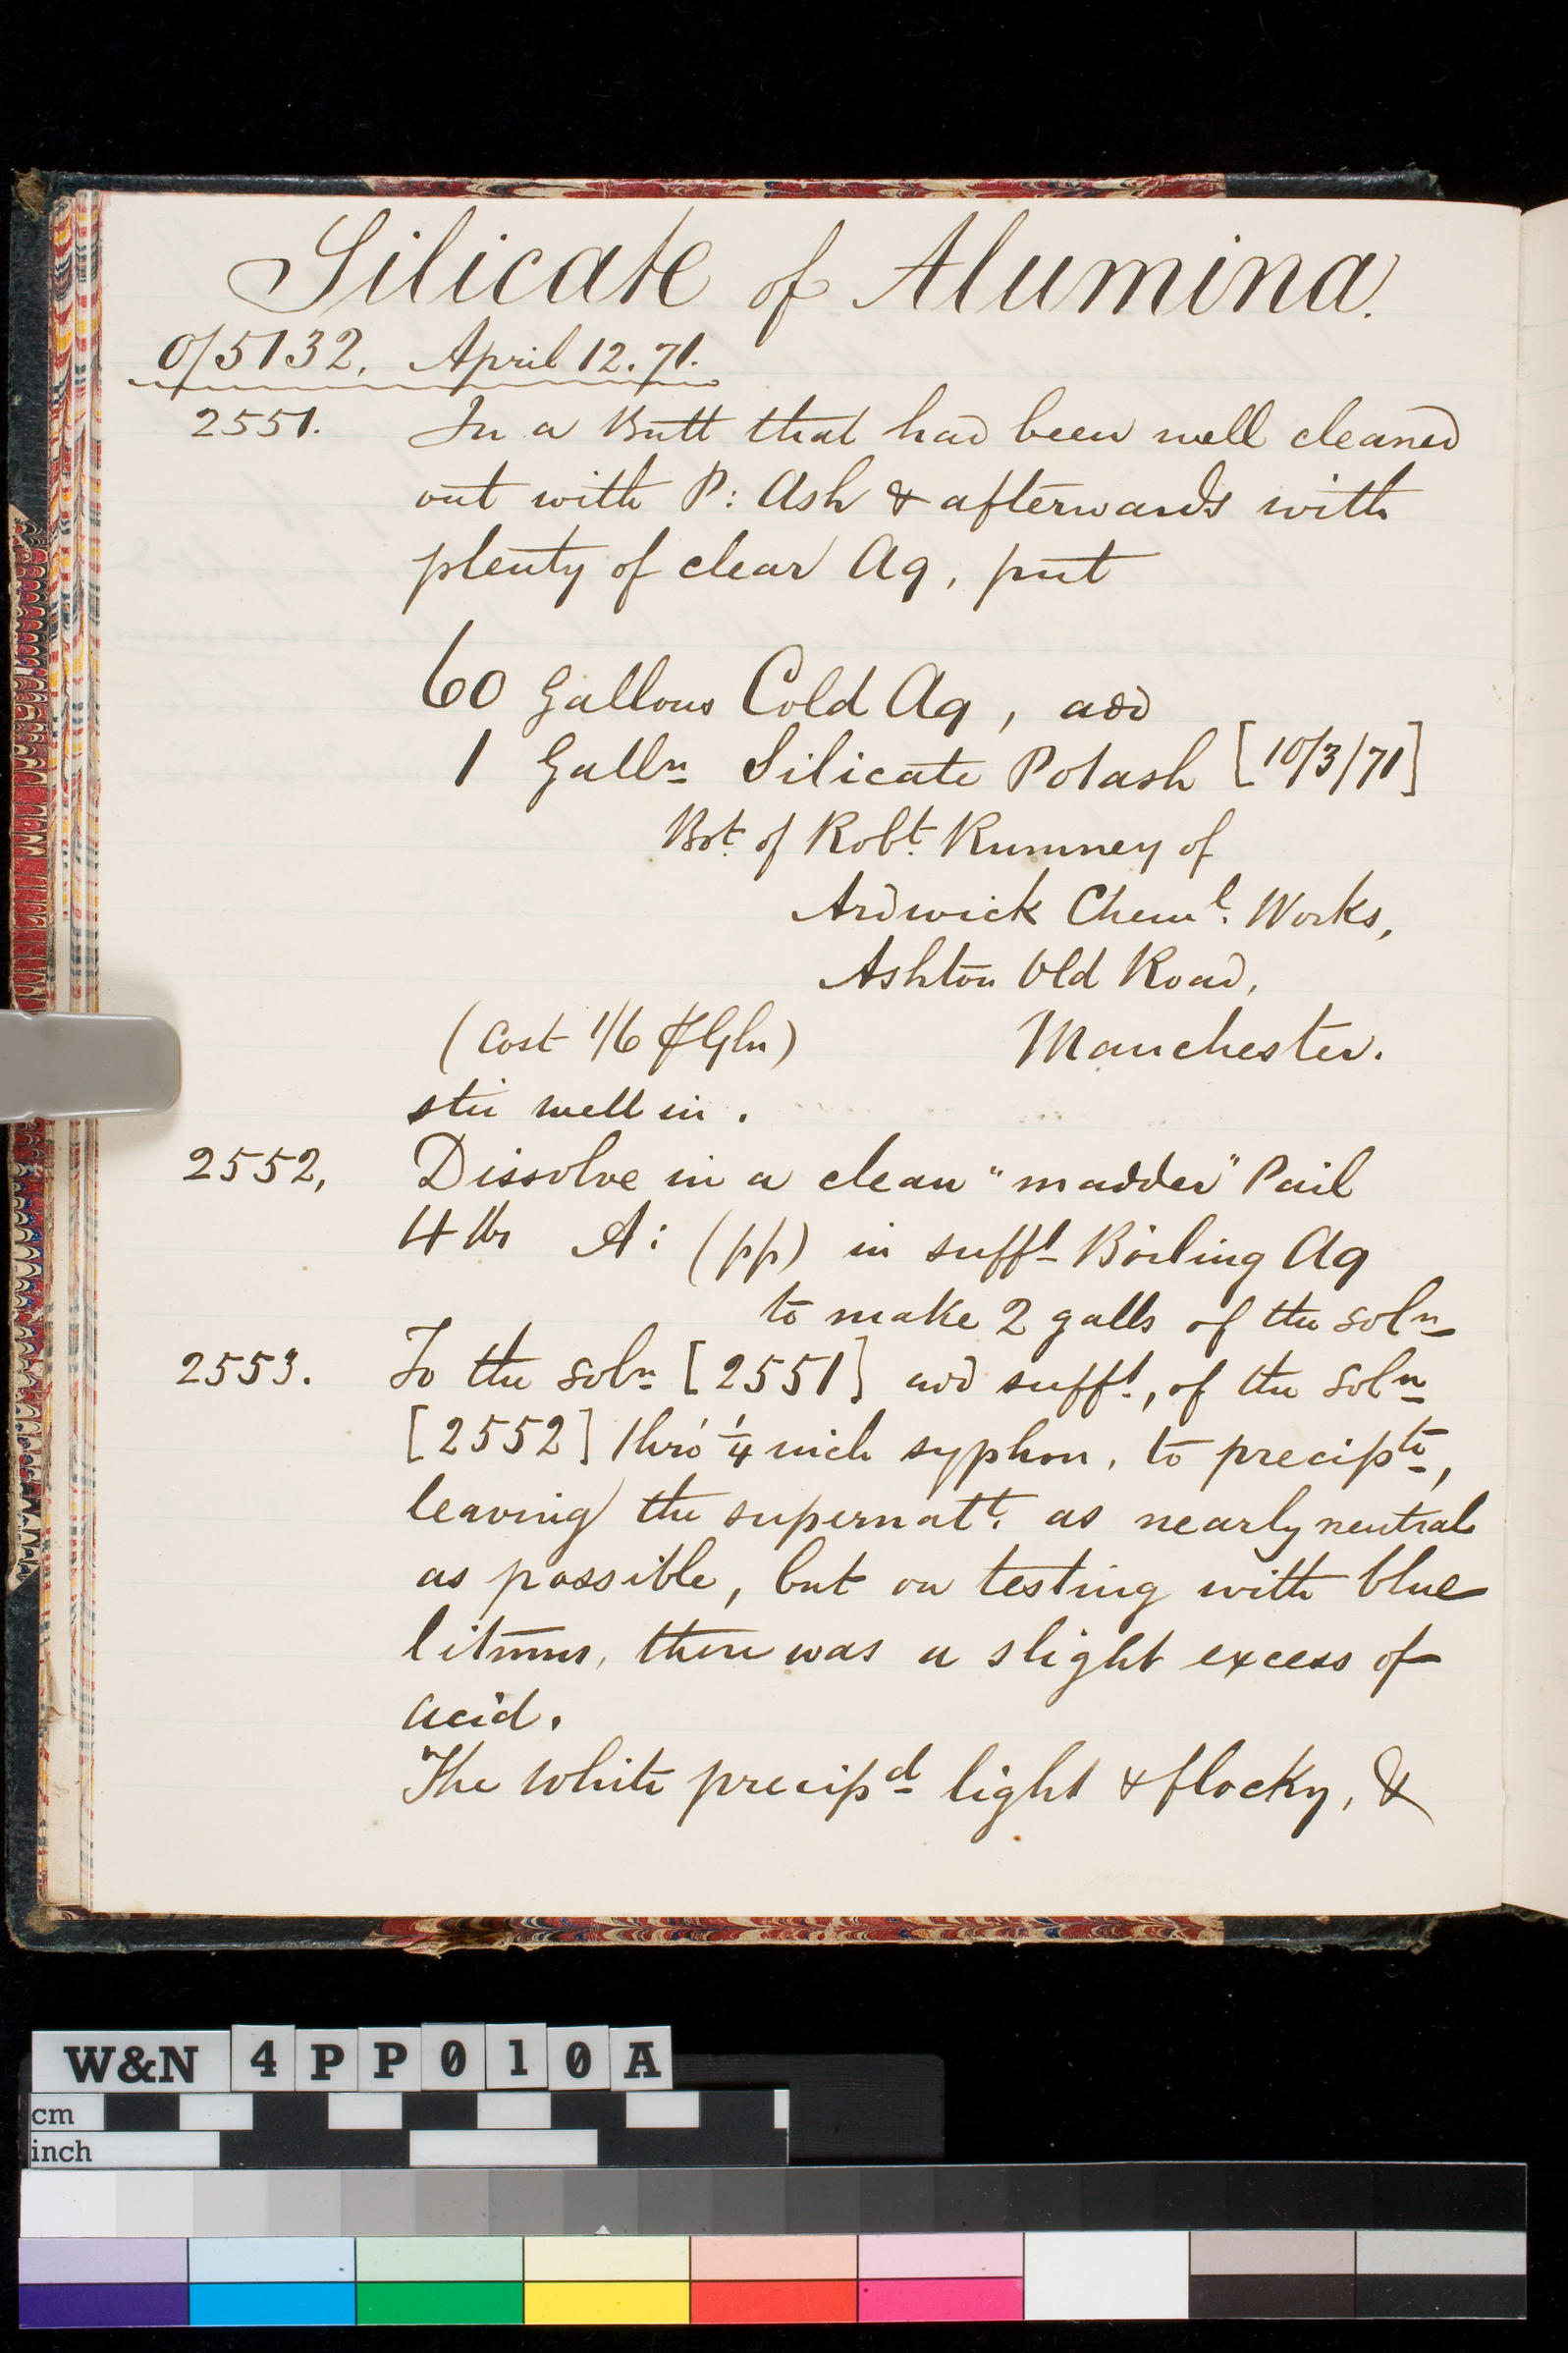 Silicate of Alumina.
O/5132. April 12. 71.
2551. In a Butt that had been well cleaned
out with P: Ash & afterwards with
plenty of clear Aq, put
60 Gallons Cold Aq, add
1 Galln Silicate Potash [10/3/71]
Bot. of Robt. Rumney of
Ardwick Cheml. Works,
Ashton Old Road,
(Cost 1/6 ⅌ Gln) Manchester.
stir well in.
2552, Dissolve in a clean "madder" Pail
4 lbs A: (pp) in sufft Boiling Aq
to make 2 galls of the soln
2553. To the soln [2551] add sufft, of the soln
[2552] thro' 1/4 inch syphon, to precipte,
leaving the supernatt. as nearly neutral
as possible, but on testing with blue
litmus, there was a slight excess of
acid.
The white precipd light & flocky, &
W&N 4PP010A
cm
inch